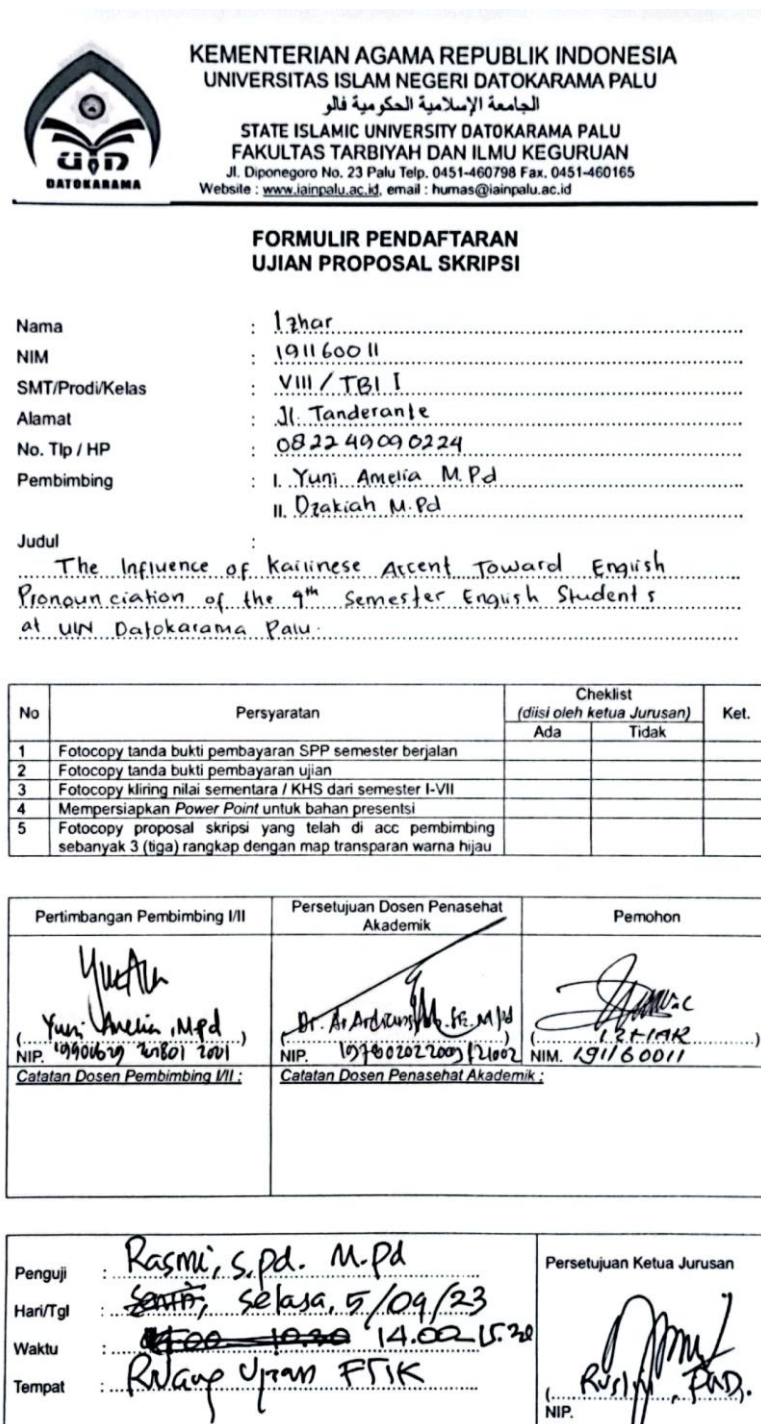 KEMENTERIAN AGAMA REPUBLIK INDONESIA
UNIVERSITAS ISLAM NEGERI DATOKARAMA PALU
الجامعة الإسلامية الحكومية فالو
STATE ISLAMIC UNIVERSITY DATOKARAMA PALU
FAKULTAS TARBIYAH DAN ILMU KEGURUAN
Jl. Diponegoro No. 23 Palu Telp. 0451-460798 Fax. 0451-460165
Website : www.iainpalu.ac.id, email : humas@iainpalu.ac.id
UIN
DATOKARAMA
FORMULIR PENDAFTARAN
UJIAN PROPOSAL SKRIPSI
Nama : Izhar
NIM : 191160011
SMT/Prodi/Kelas : VIII / TBI I
Alamat : Jl. Tanderante
No. Tlp / HP : 082249090224
Pembimbing : I. Yuni Amelia M.Pd
II. Dzakiah M.Pd
Judul :
The Influence of Kailinese Accent Toward English
Pronounciation of the 9th Semester English Students
at UIN Datokarama Palu.
No Persyaratan Cheklist (diisi oleh ketua Jurusan) Ket.
Ada Tidak
1 Fotocopy tanda bukti pembayaran SPP semester berjalan
2 Fotocopy tanda bukti pembayaran ujian
3 Fotocopy kliring nilai sementara / KHS dari semester I-VII
4 Mempersiapkan Power Point untuk bahan presentsi
5 Fotocopy proposal skripsi yang telah di acc pembimbing
sebanyak 3 (tiga) rangkap dengan map transparan warna hijau
Pertimbangan Pembimbing I/II Persetujuan Dosen Penasehat Akademik Pemohon
(Yuni Amelia, M.Pd) (Dr. M.Pd) (IZHAR)
NIP. NIP. NIM. 191160011
Catatan Dosen Pembimbing I/II : Catatan Dosen Penasehat Akademik :
Penguji : Rasmi, S.Pd. M.Pd
Hari/Tgl : Senin, Selasa, 5/09/23
Waktu : 14.00
Tempat : Ruang Ujian FTIK
Persetujuan Ketua Jurusan
NIP.